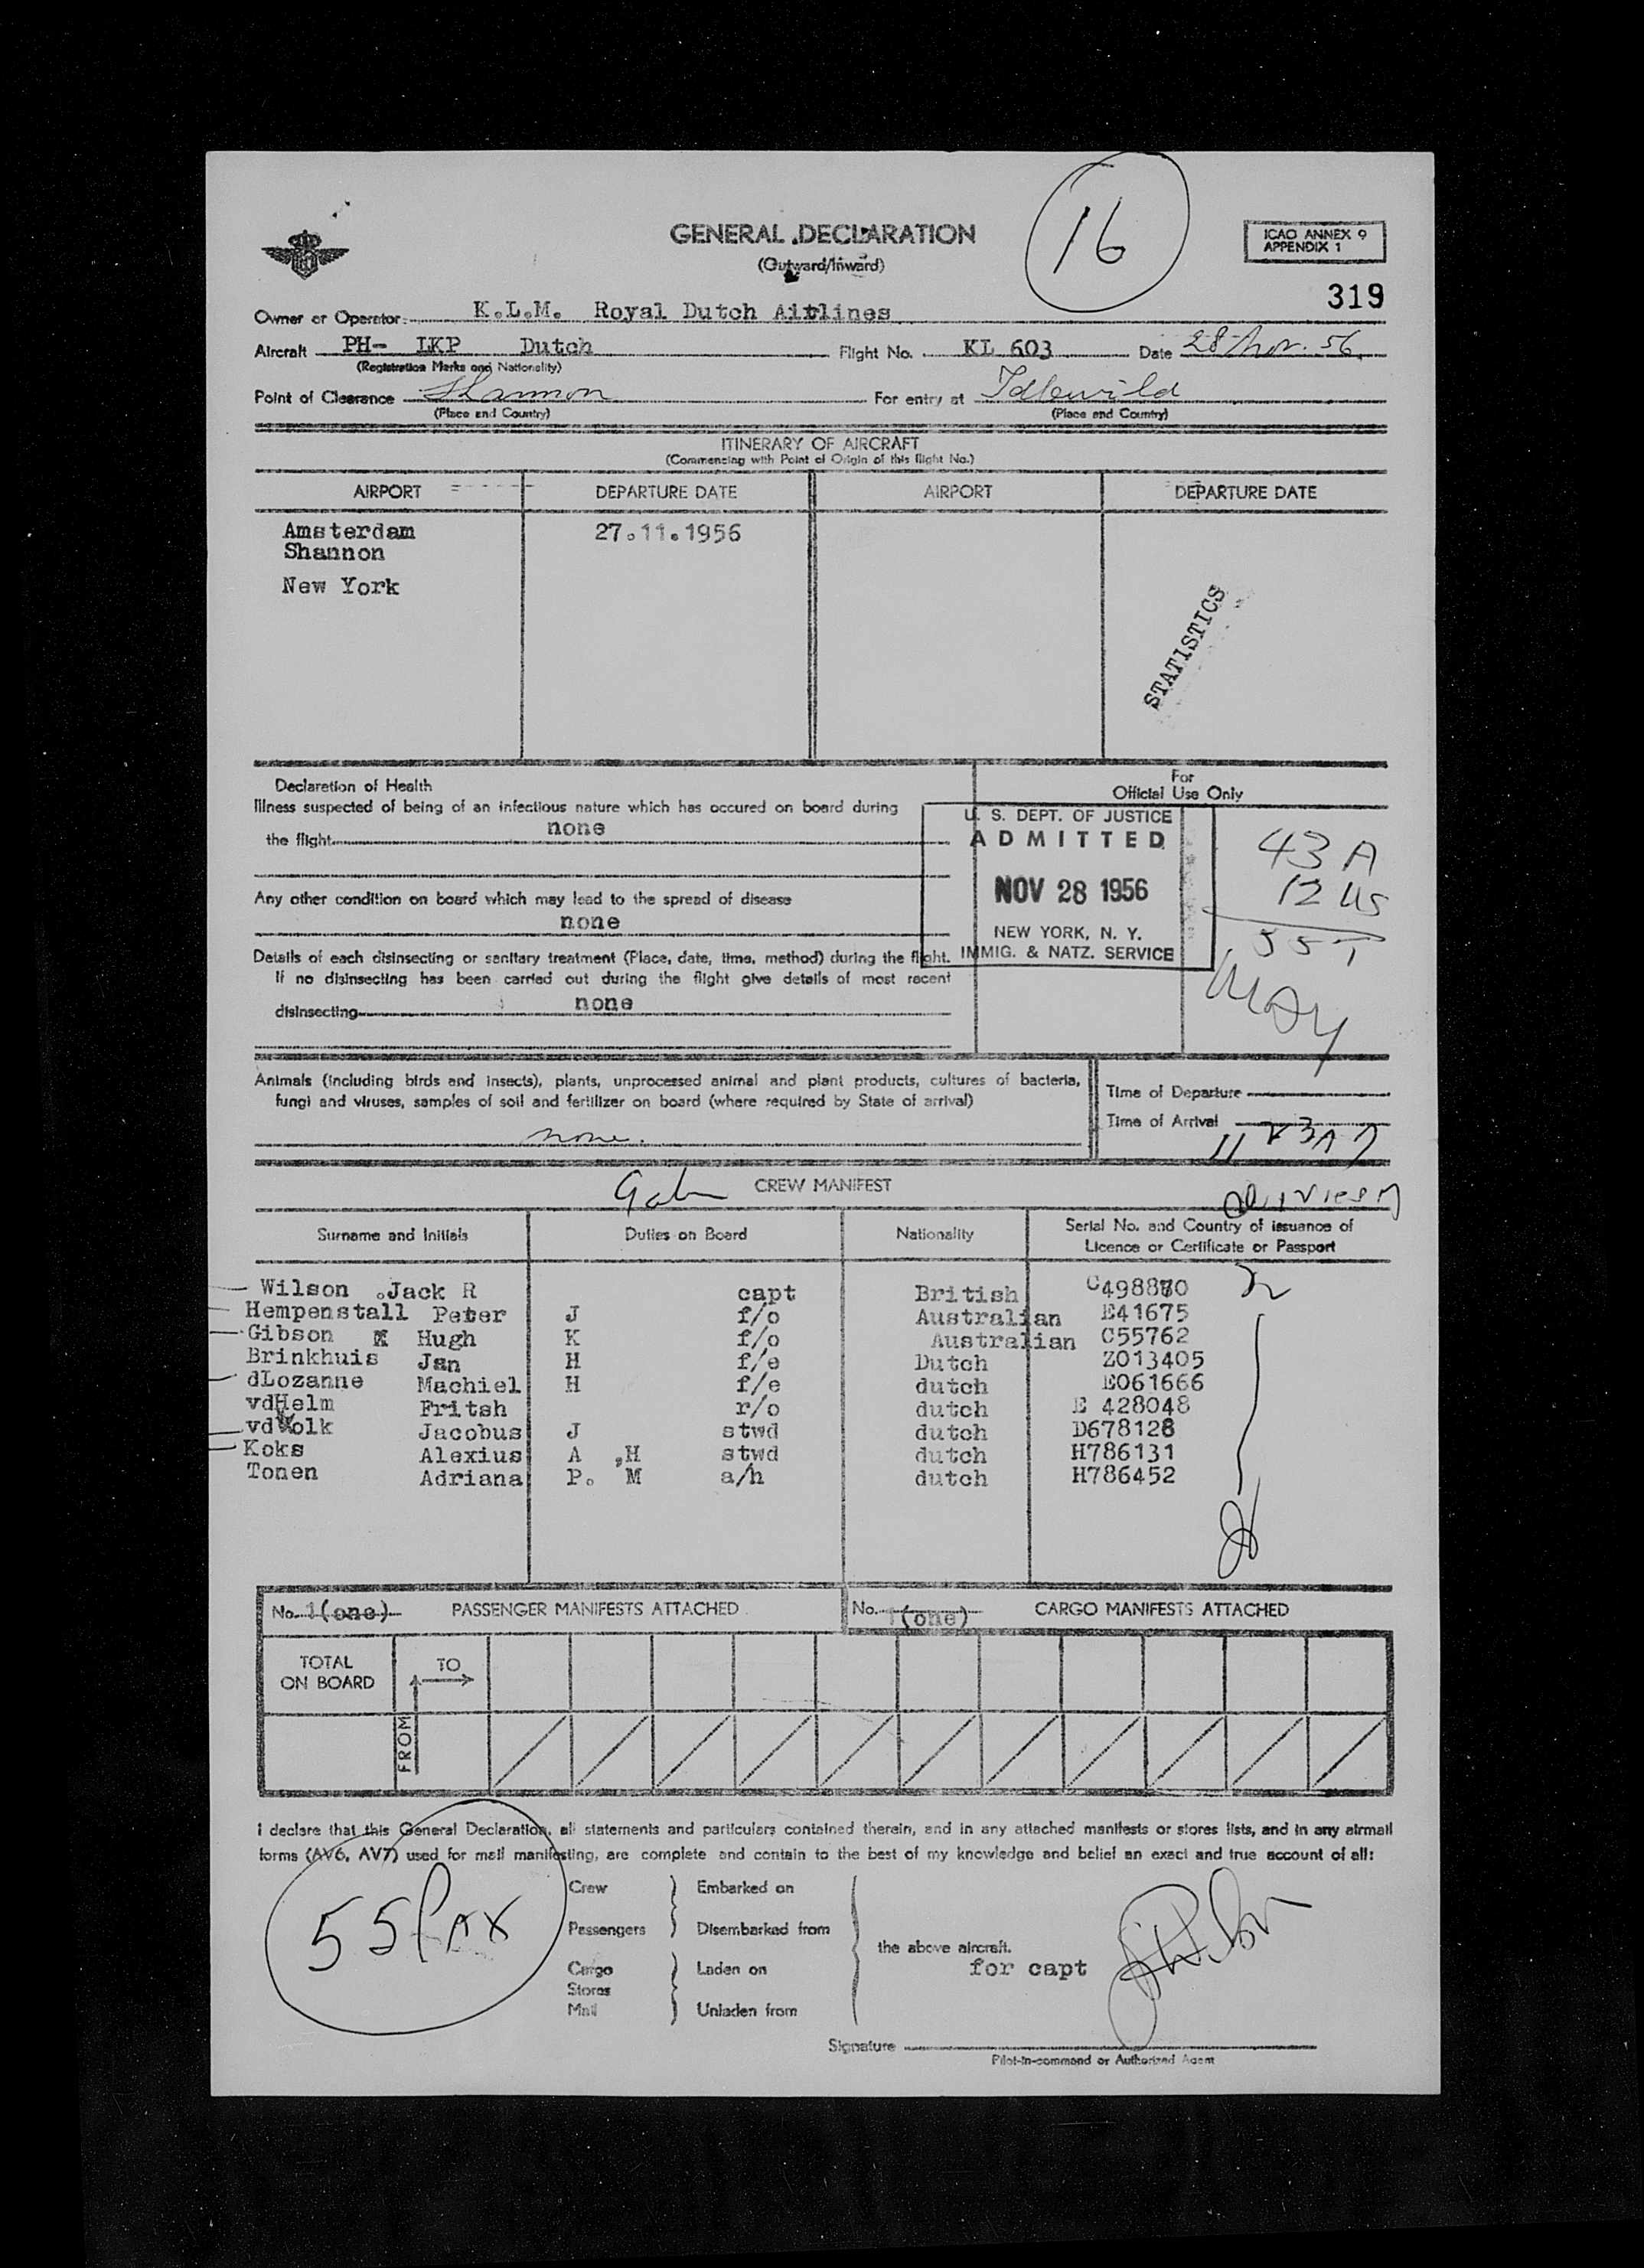 GENERAL DECLARATION
(Outward/Inward)
16
ICAO ANNEX 9
APPENDIX 1
319
Owner or Operator: K.L.M. Royal Dutch Airlines
Aircraft PH- LKP Dutch Flight No. KL 603 Date 28 Nov. 56
(Registration Marks and Nationality)
Point of Clearance Shannon For entry at Idlewild
(Place and Country) (Place and Country)
ITINERARY OF AIRCRAFT
(Commencing with Point of Origin of this flight No.)
AIRPORT DEPARTURE DATE AIRPORT DEPARTURE DATE
Amsterdam 27.11.1956
Shannon
New York
STATISTICS
Declaration of Health
For
Official Use Only
Illness suspected of being of an infectious nature which has occured on board during
the flight none
U. S. DEPT. OF JUSTICE
ADMITTED
NOV 28 1956
NEW YORK, N. Y.
IMMIG. & NATZ. SERVICE
43 A
12 US
55 T
Any other condition on board which may lead to the spread of disease
none
Details of each disinsecting or sanitary treatment (Place, date, time, method) during the flight.
If no disinsecting has been carried out during the flight give details of most recent
disinsecting none
Animals (including birds and insects), plants, unprocessed animal and plant products, cultures of bacteria,
fungi and viruses, samples of soil and fertilizer on board (where required by State of arrival)
none.
Time of Departure
Time of Arrival
CREW MANIFEST
Surname and Initials Duties on Board Nationality Serial No. and Country of issuance of
Licence or Certificate or Passport
Wilson .Jack R capt British C498870
Hempenstall Peter J f/o Australian E41675
Gibson Hugh K f/o Australian C55762
Brinkhuis Jan H f/e Dutch Z013405
dLozanne Machiel H f/e dutch E061666
vdHelm Fritsh r/o dutch E 428048
vdWolk Jacobus J stwd dutch D678128
Koks Alexius A ,H stwd dutch H786131
Tonen Adriana P. M a/h dutch H786452
No. 1(one) PASSENGER MANIFESTS ATTACHED No. 1(one) CARGO MANIFESTS ATTACHED
TOTAL
ON BOARD
TO
FROM
I declare that this General Declaration, all statements and particulars contained therein, and in any attached manifests or stores lists, and in any airmail
forms (AV6, AV7) used for mail manifesting, are complete and contain to the best of my knowledge and belief an exact and true account of all:
55 Pax
Crew Embarked on
Passengers Disembarked from
the above aircraft.
Cargo Laden on
for capt
Stores
Mail Unladen from
Signature
Pilot-in-command or Authorized Agent